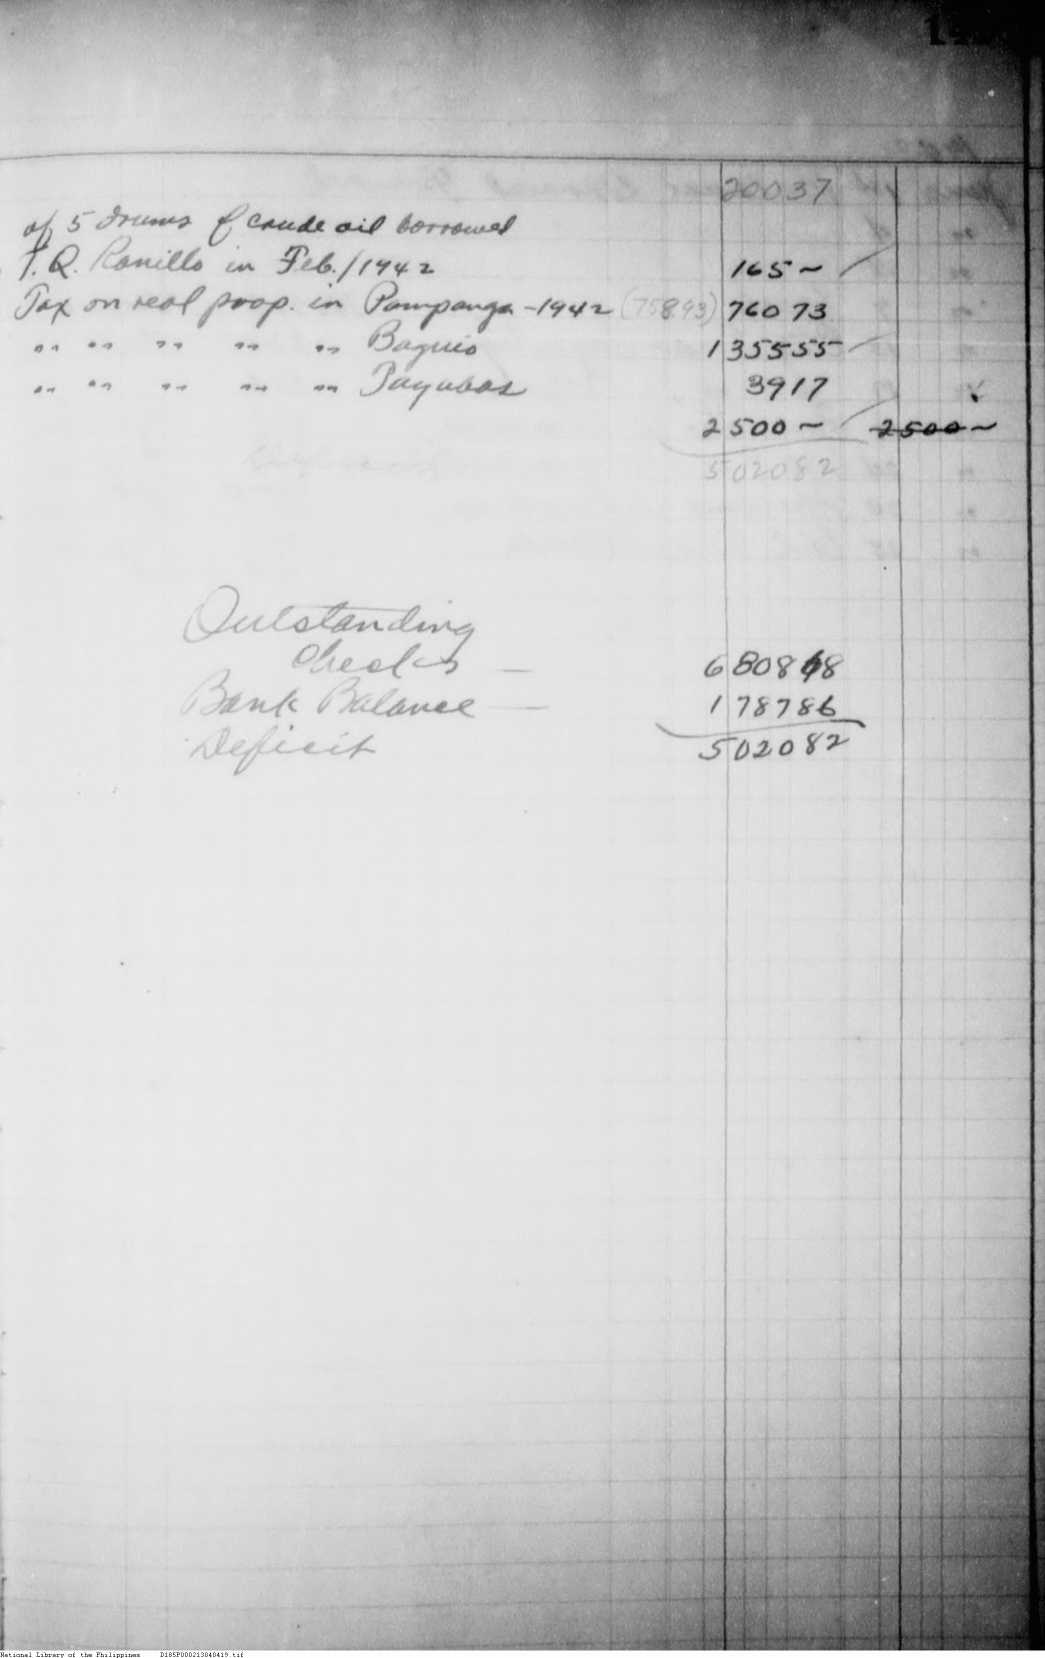 20037
of 5 drums of crude oil borrowed
T. Q. Ronillo in Feb./1942 165 ~
Tax on real prop. in Pampanga - 1942 (758.93) 760 73
" " " " " Baguio 1 355 55
" " " " " Tayabas 39 17
2 500 ~ 2 500 ~
5 020 82
Outstanding
Checks — 6 808 68
Bank Balance — 1 787 86
Deficit 5 020 82
National Library of the Philippines D185P000213040419.tif